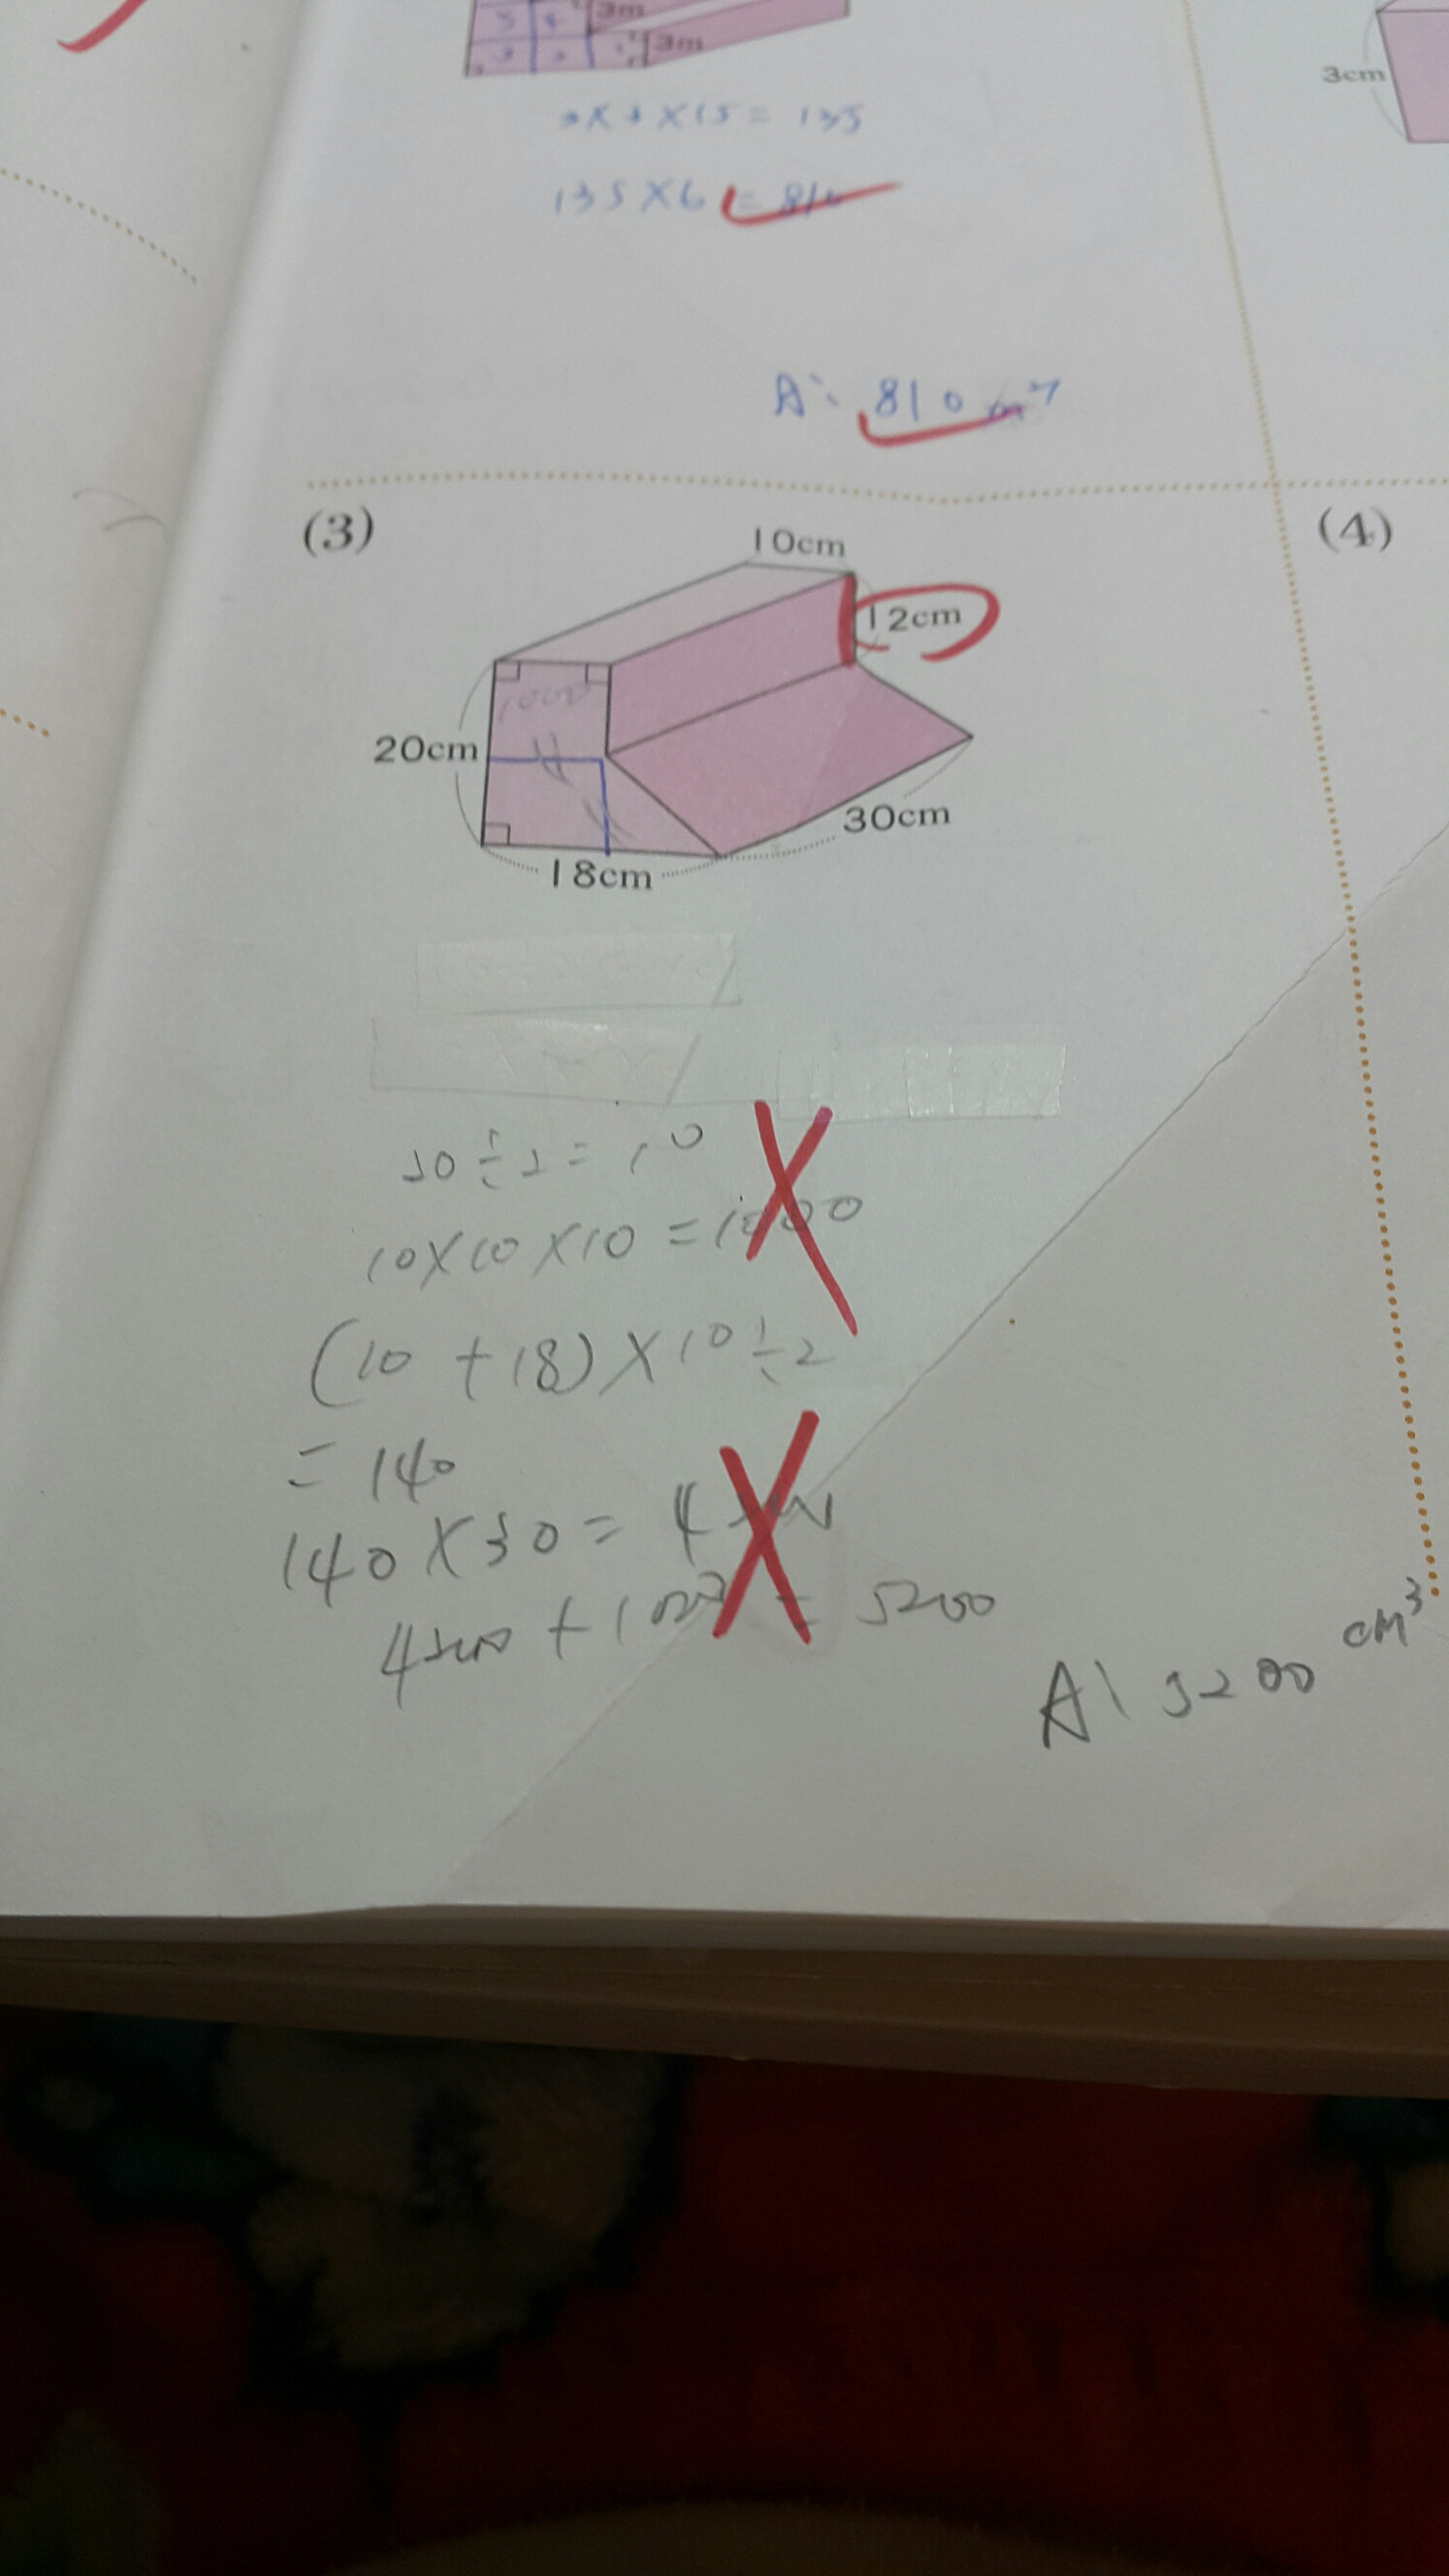 3m
3m
3cm
135X6 = 810
A: 810 m
(3)
(4)
10cm
12cm
1000
20cm
30cm
18cm
20÷2=10
10X10X10=1000
(10+18)X10÷2
=140
140X30=4200
4200+1000=5200
A: 5200 cm³